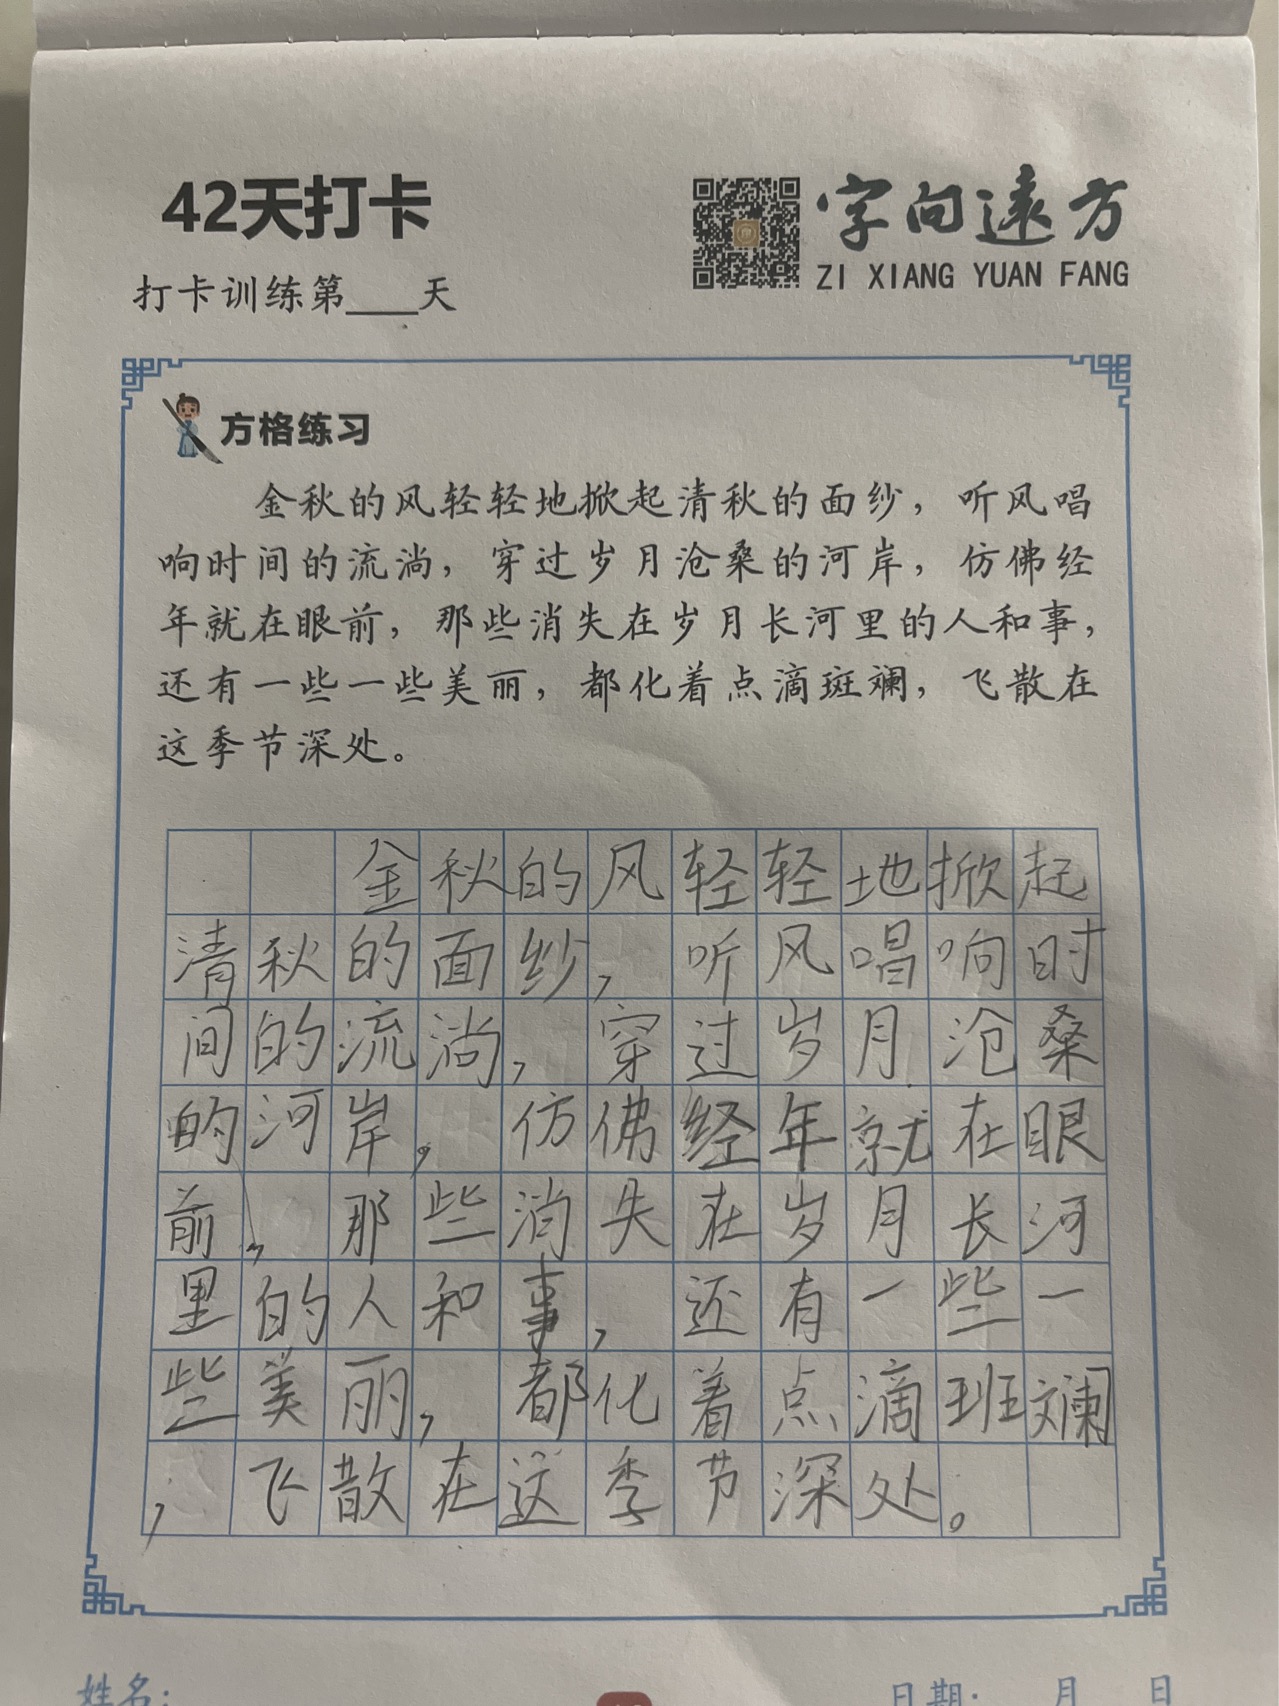 42天打卡
字向远方
ZI XIANG YUAN FANG
打卡训练第____天
方格练习
金秋的风轻轻地掀起清秋的面纱，听风唱
响时间的流淌，穿过岁月沧桑的河岸，仿佛经
年就在眼前，那些消失在岁月长河里的人和事，
还有一些一些美丽，都化着点滴斑斓，飞散在
这季节深处。
金秋的风轻轻地掀起
清秋的面纱，听风唱响时
间的流淌，穿过岁月沧桑
的河岸，仿佛经年就在眼
前，那些消失在岁月长河
里的人和事，还有一些一
些美丽，都化着点滴班斓
，飞散在这季节深处。
姓名：
日期： 月 日